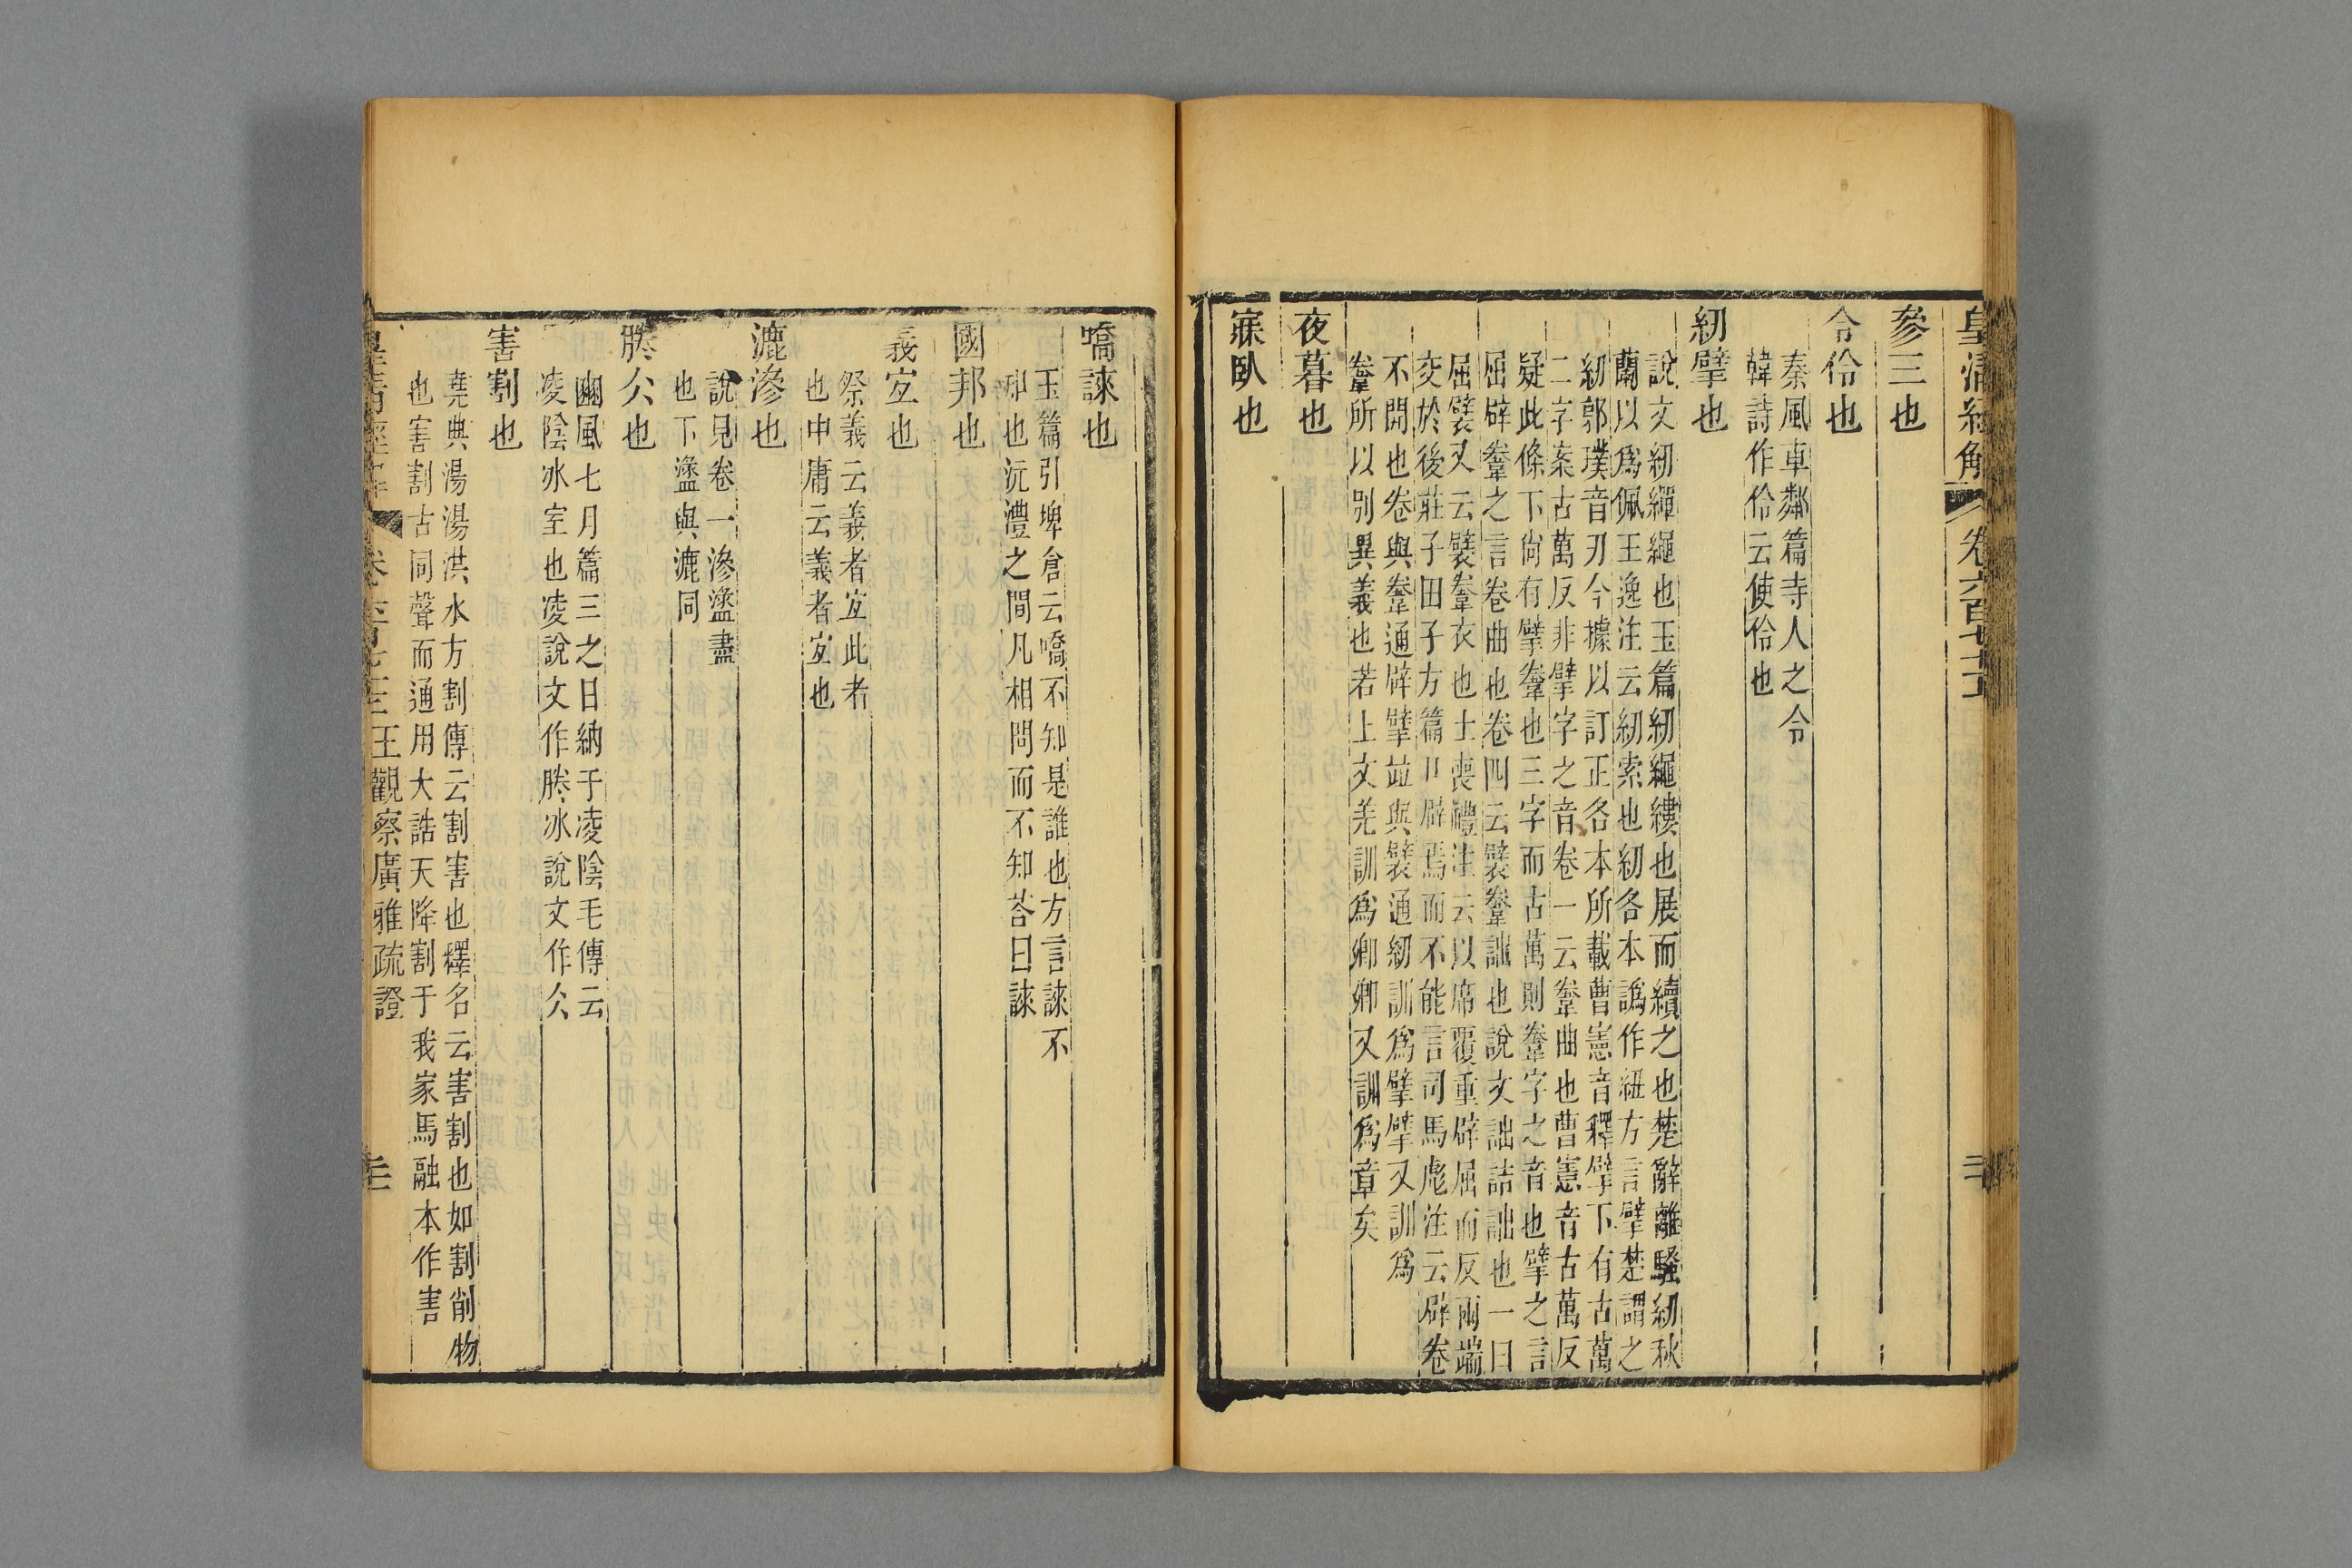 皇清經解 卷六百七十
參三也
令伶也
秦風車鄰篇寺人之令
韓詩作伶云使伶也
紉擘也
說文紉繟繩也玉篇紉繩縷也展而續之也楚辭離騷紉秋
蘭以爲佩王逸注云紉索也紉各本譌作紐方言擘楚謂之
紉郭璞音刃今據以訂正各本所載曹憲音釋擘下有古萬
二字案古萬反非擘字之音卷一云韏曲也曹憲音古萬反
疑此條下尙有擘韏也三字而古萬則韏字之音也擘之言
屈辟韏之言卷曲也卷四云襞韏詘也說文詘詰詘也一曰
屈襞又云襞韏衣也士喪禮注云以席覆重辟屈而反兩端
交於後莊子田子方篇口辟焉而不能言司馬彪注云辟卷
不開也卷與韏通辟擘竝與襞通紉訓爲擘擘又訓爲
韏所以別異義也若上文羌訓爲卿卿又訓爲章矣
夜暮也
寐臥也
嚪誺也
玉篇引埤倉云嚪不知是誰也方言誺不
知也沅澧之間凡相問而不知荅曰誺
國邦也
義宐也
祭義云義者宐此者
也中庸云義者宐也
漉滲也
說見卷一滲盝盡
也下盝與漉同
㬺仌也
豳風七月篇三之日納于凌陰毛傳云
凌陰冰室也凌說文作㬺冰說文作仌
害割也
堯典湯湯洪水方割傳云割害也釋名云害割也如割削物
也害割古同聲而通用大誥天降割于我家馬融本作害
王觀察廣雅疏證